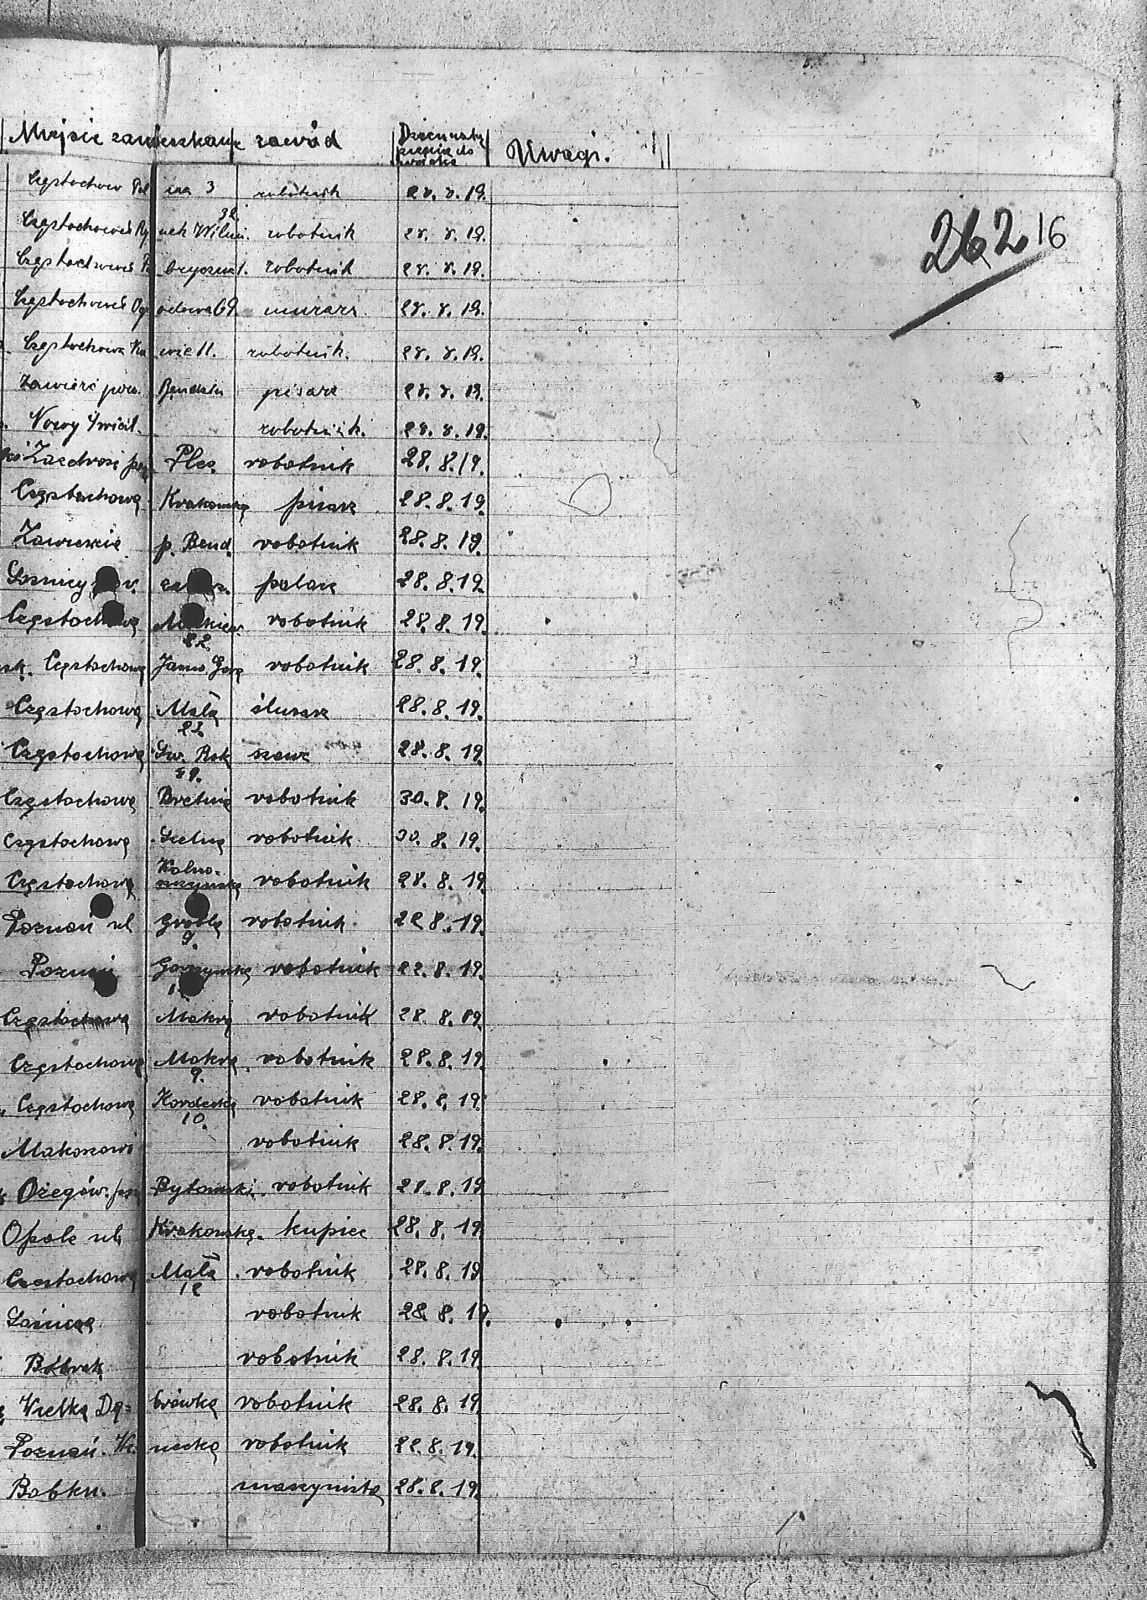 Miejsce zamieszkania zawód Dzień wstąpienia do wojska Uwagi.
262 16
Częstochowa 3 robotnik 28. 8. 19.
Częstochowa Rynek Wieluń. 32. robotnik 28. 8. 19.
Częstochowa robotnik 28. 8. 19.
Częstochowa Ogrodowa 69. murarz 28. 8. 19.
Częstochowa 11. robotnik. 28. 8. 19.
Zawierć pow. Bendzin pisarz 28. 8. 19.
Nowy Świat. robotnik. 28. 8. 19.
Zazdrość pow. Ples robotnik 28. 8. 19.
Częstochowa Krakowska pisarz 28. 8. 19.
Zawiercie p. Bend. robotnik 28. 8. 19.
palacz 28. 8. 19.
Częstochowa 22. robotnik 28. 8. 19.
Częstochowa Jasna Góra robotnik 28. 8. 19.
Częstochowa Mała 22. ślusarz 28. 8. 19.
Częstochowa Św. Rok szewc 28. 8. 19.
Częstochowa robotnik 30. 8. 19.
Częstochowa robotnik 30. 8. 19.
Częstochowa robotnik 28. 8. 19.
Poznań ul Grobla 9. robotnik 22 8. 19.
Poznań robotnik 22. 8. 19.
Częstochowa Mokra robotnik 28. 8. 19.
Częstochowa Mokra 9. robotnik 28. 8. 19.
Częstochowa Kordecka 10. robotnik 28. 8. 19.
Makoszowi robotnik 28. 8. 19.
Ożegów. pow Bytomski. robotnik 28. 8. 19
Opole ul. Krakowska. kupiec 28. 8. 19
Czestochowa Mała 12 robotnik 28. 8. 19
robotnik 28. 8. 19.
Bobrek robotnik 28. 8. 19.
Wielka Dąbrówka robotnik 28. 8. 19.
Poznań. robotnik 22. 8. 19.
Bobku. maszynista 28. 8. 19.